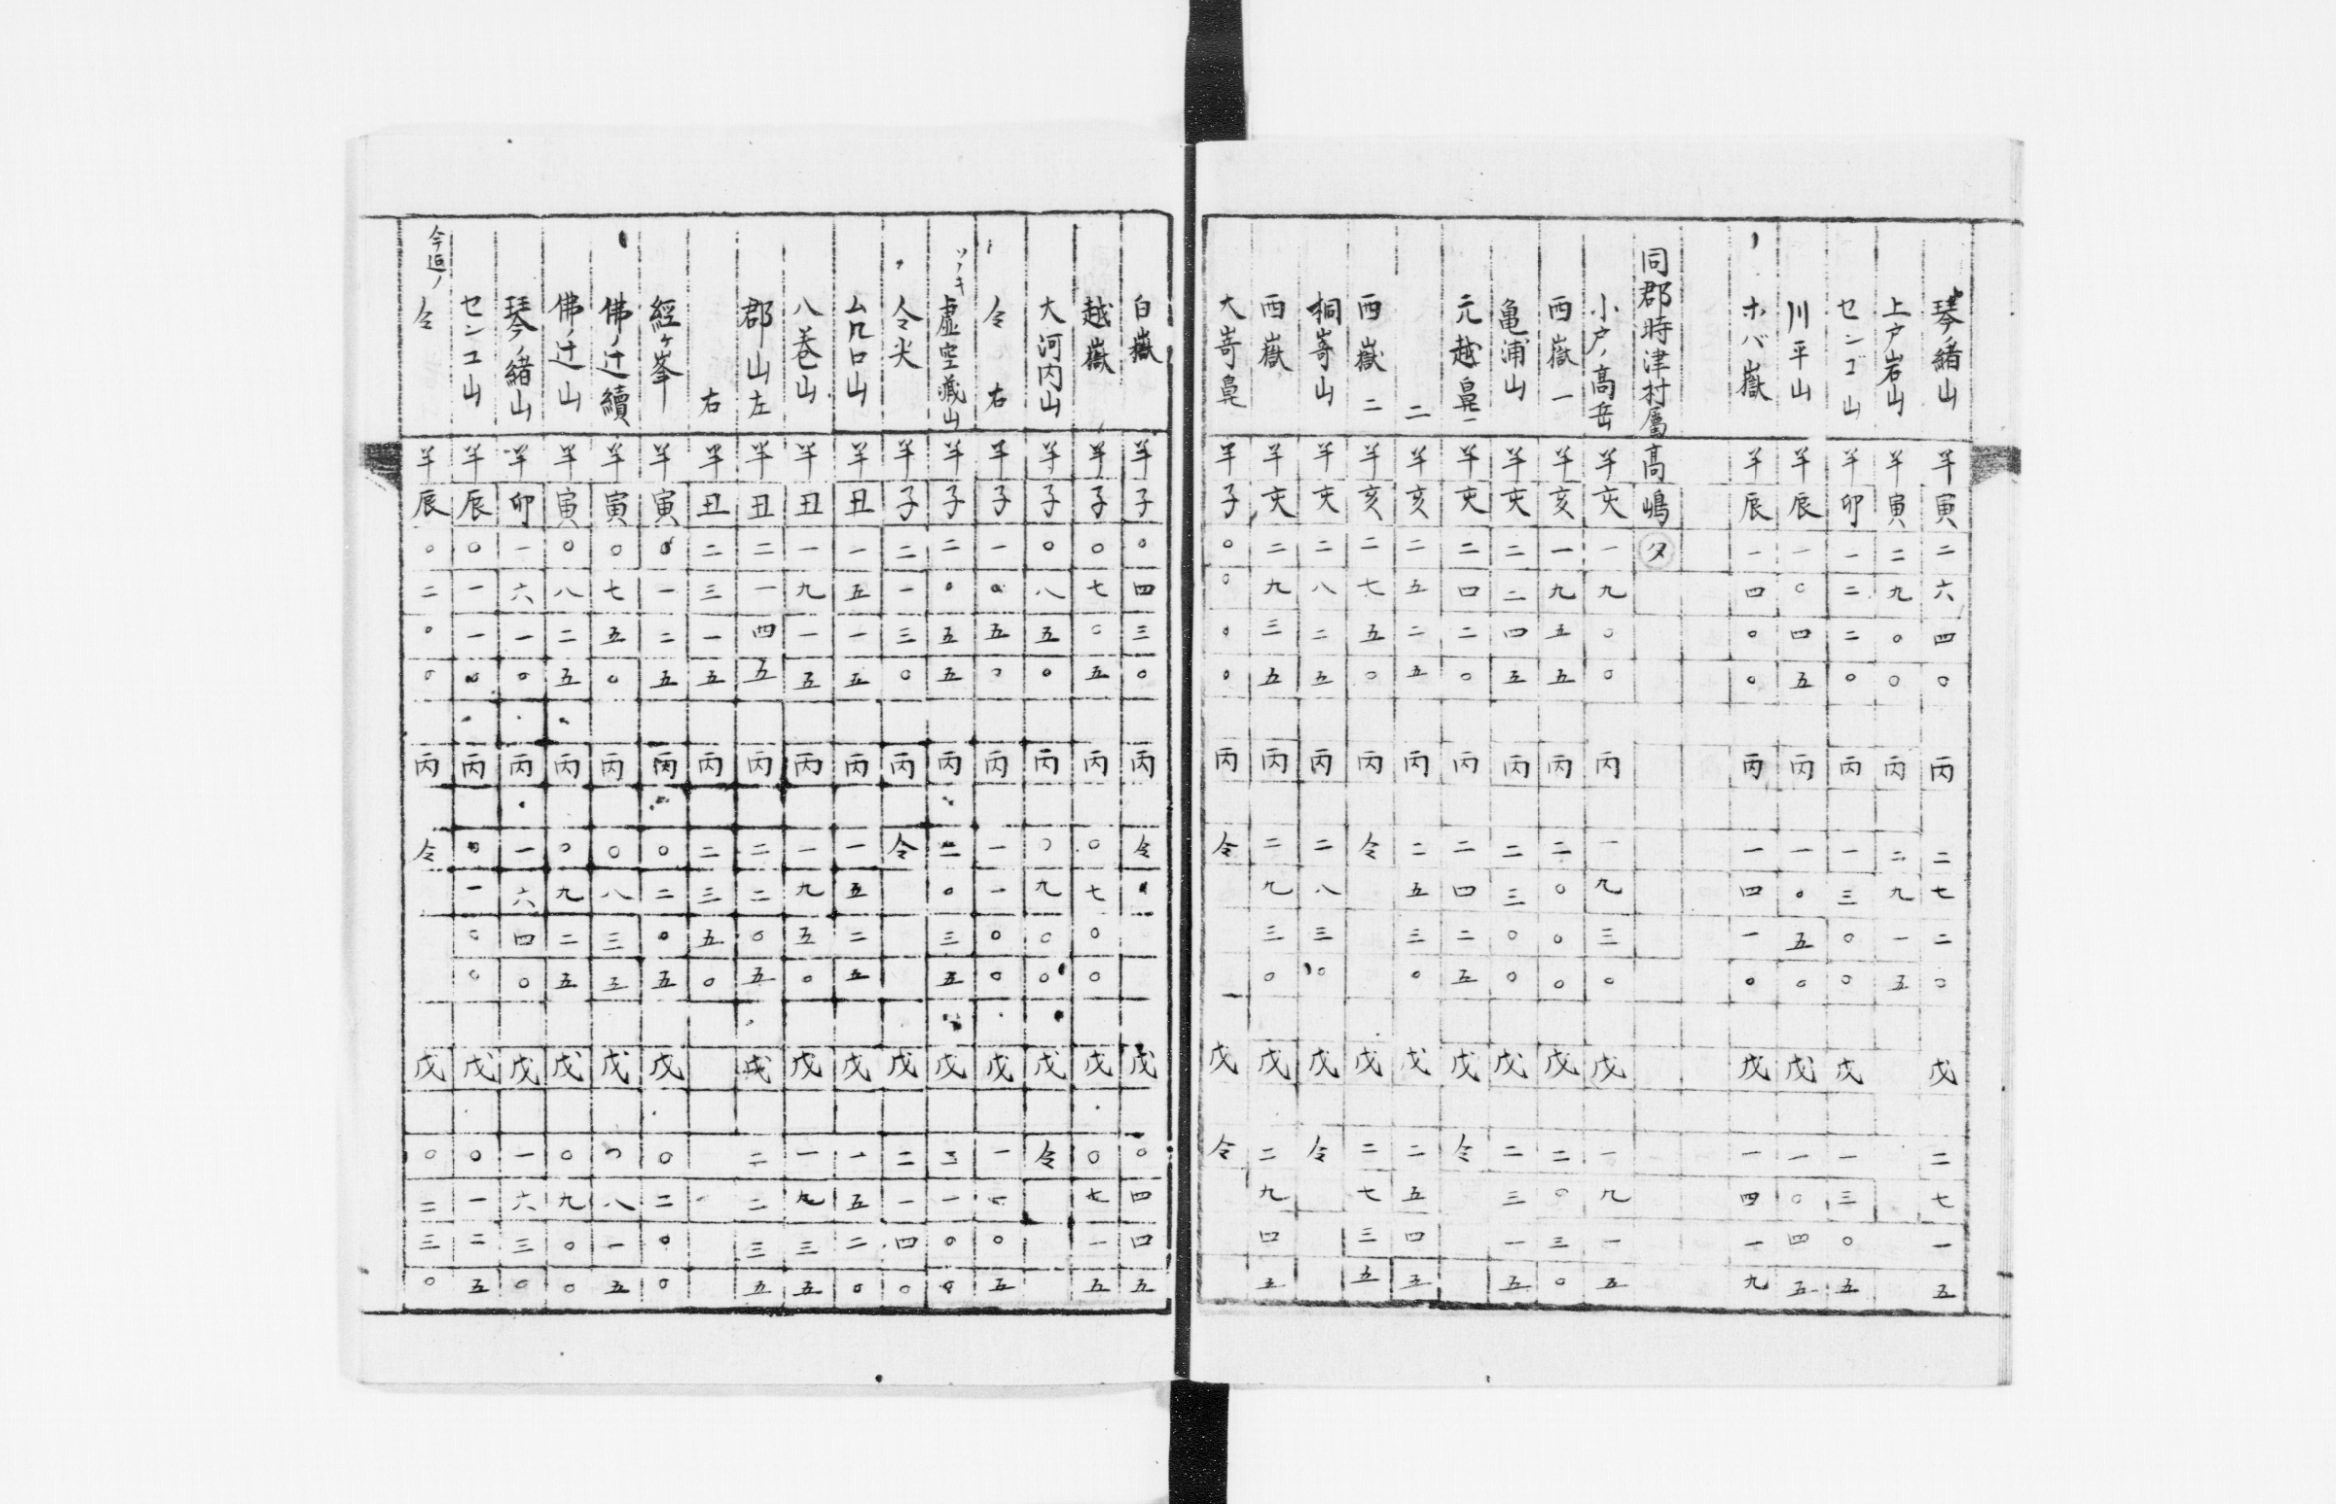 琴ノ緒山 羊 寅 二 六 四 〇 丙 二 七 二 〇 戊 二 七 一 五
上戸岩山 羊 寅 二 九 〇 〇 丙 二 九 一 五
センゴ山 羊 卯 一 二 二 〇 丙 一 三 〇 〇 戊 一 三 〇 五
川平山 羊 辰 一 〇 四 五 丙 一 〇 五 〇 戊 一 〇 四 五
ホバ嶽 羊 辰 一 四 〇 〇 丙 一 四 一 〇 戊 一 四 一 九
同郡時津村属高嶋 タ
小戸ノ高岳 羊 亥 一 九 〇 〇 丙 一 九 三 〇 戊 一 九 一 五
西嶽一 羊 亥 一 九 五 五 丙 二 〇 〇 〇 戊 二 〇 三 〇
亀浦山 羊 亥 二 二 四 五 丙 二 三 〇 〇 戊 二 三 一 五
元越鼻一 羊 亥 二 四 二 〇 丙 二 四 二 五 戊 仝
二 羊 亥 二 五 二 五 丙 二 五 三 〇 戊 二 五 四 五
西嶽二 羊 亥 二 七 五 〇 丙 仝 戊 二 七 三 五
桐嵜山 羊 亥 二 八 二 五 丙 二 八 三 〇 戊 仝
西嶽 羊 亥 二 九 三 五 丙 二 九 三 〇 戊 二 九 四 五
大嵜鼻 羊 子 〇 〇 〇 〇 丙 仝 戊 仝
白嶽 羊 子 〇 四 三 〇 丙 仝 戊 〇 四 四 五
越嶽 羊 子 〇 七 〇 五 丙 〇 七 〇 〇 戊 〇 七 一 五
大河内山 羊 子 〇 八 五 〇 丙 〇 九 〇 〇 戊 仝
仝 右 羊 子 一 〇 五 〇 丙 一 一 〇 〇 戊 一 〇 五
ソノキ 虚空蔵山 羊 子 二 〇 五 五 丙 二 〇 三 五 戊 二 一 〇 〇
仝尖 羊 子 二 一 三 〇 丙 仝 戊 二 一 四 〇
ムロ口山 羊 丑 一 五 一 五 丙 一 五 二 五 戊 一 五 二 〇
八巻山 羊 丑 一 九 一 五 丙 一 九 五 〇 戊 一 九 三 五
郡山左 羊 丑 二 一 四 五 丙 二 二 〇 五 戊 二 二 三 五
右 羊 丑 二 三 一 五 丙 二 三 五 〇
經ヶ峯 羊 寅 〇 一 二 五 丙 〇 二 〇 五 戊 〇 二 〇 〇
佛ノ辻續 羊 寅 〇 七 五 〇 丙 〇 八 三 五 戊 〇 八 一 五
佛ノ辻山 羊 寅 〇 八 二 五 丙 〇 九 二 五 戊 〇 九 〇 〇
琴ノ緒山 羊 卯 一 六 一 〇 丙 一 六 四 〇 戊 一 六 三 〇
センコ山 羊 辰 〇 一 一 〇 丙 〇 一 〇 〇 戊 〇 一 二 五
今迫ノ 仝 羊 辰 〇 二 〇 〇 丙 仝 戊 〇 二 三 〇